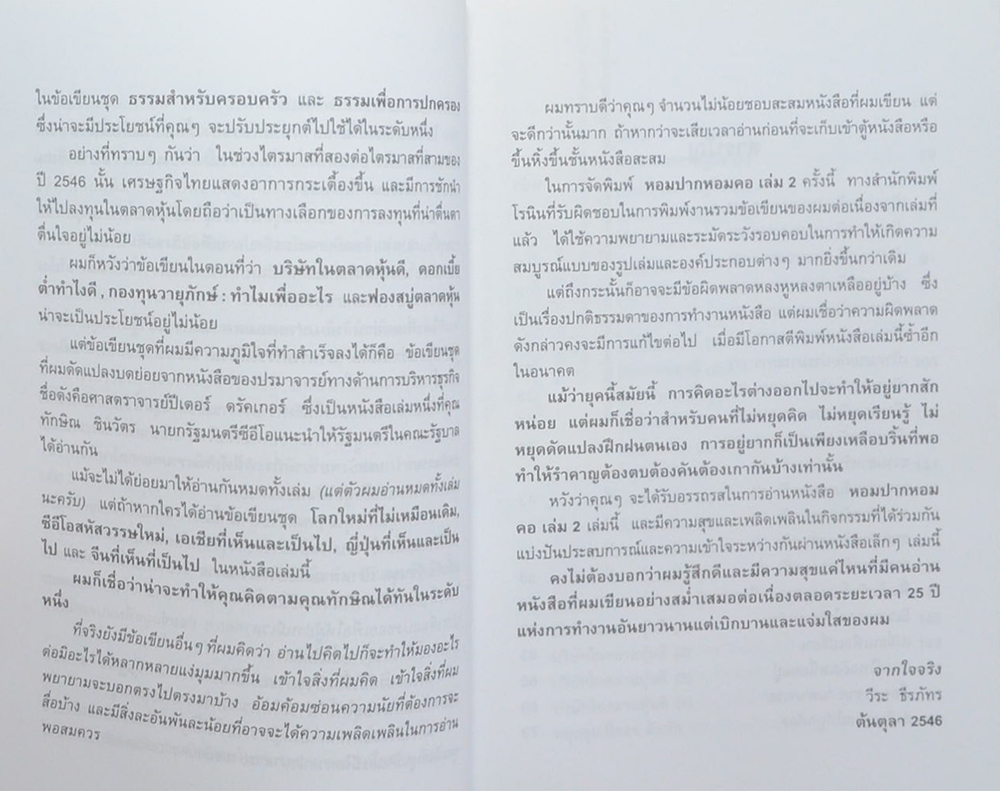 ในข้อเขียนชุด ธรรมสำหรับครอบครัว และ ธรรมเพื่อการปกครอง
ซึ่งน่าจะมีประโยชน์ที่คุณๆ จะปรับประยุกต์ไปใช้ได้ในระดับหนึ่ง
อย่างที่ทราบๆ กันว่า ในช่วงไตรมาสที่สองต่อไตรมาสที่สามของ
ปี 2546 นั้น เศรษฐกิจไทยแสดงอาการกระเตื้องขึ้น และมีการชักนำ
ให้ไปลงทุนในตลาดหุ้นโดยถือว่าเป็นทางเลือกของการลงทุนที่น่าตื่นตา
ตื่นใจอยู่ไม่น้อย
ผมก็หวังว่าข้อเขียนในตอนที่ว่า บริษัทในตลาดหุ้นดี, ดอกเบี้ย
ต่ำทำไงดี, กองทุนวายุภักษ์ : ทำไมเพื่ออะไร และฟองสบู่ตลาดหุ้น
น่าจะเป็นประโยชน์อยู่ไม่น้อย
แต่ข้อเขียนชุดที่ผมมีความภูมิใจที่ทำสำเร็จลงได้ก็คือ ข้อเขียนชุด
ที่ผมดัดแปลงบดย่อยจากหนังสือของปรมาจารย์ทางด้านการบริหารธุรกิจ
ชื่อดังคือศาสตราจารย์ปีเตอร์ ดรัคเกอร์ ซึ่งเป็นหนังสือเล่มหนึ่งที่คุณ
ทักษิณ ชินวัตร นายกรัฐมนตรีซีอีโอแนะนำให้รัฐมนตรีในคณะรัฐบาล
ได้อ่านกัน
แม้จะไม่ได้ย่อยมาให้อ่านกันหมดทั้งเล่ม (แต่ตัวผมอ่านหมดทั้งเล่ม
นะครับ) แต่ถ้าหากใครได้อ่านข้อเขียนชุด โลกใหม่ที่ไม่เหมือนเดิม,
ซีอีโอสหัสวรรษใหม่, เอเชียที่เห็นและเป็นไป, ญี่ปุ่นที่เห็นและเป็น
ไป และ จีนที่เห็นที่เป็นไป ในหนังสือเล่มนี้
ผมก็เชื่อว่าน่าจะทำให้คุณคิดตามคุณทักษิณได้ทันในระดับ
หนึ่ง
ที่จริงยังมีข้อเขียนอื่นๆ ที่ผมคิดว่า อ่านไปคิดไปก็จะทำให้มองอะไร
ต่อมิอะไรได้หลากหลายแง่มุมมากขึ้น เข้าใจสิ่งที่ผมคิด เข้าใจสิ่งที่ผม
พยายามจะบอกตรงไปตรงมาบ้าง อ้อมค้อมซ่อนความนัยที่ต้องการจะ
สื่อบ้าง และมีสิ่งละอันพันละน้อยที่อาจจะได้ความเพลิดเพลินในการอ่าน
พอสมควร
ผมทราบดีว่าคุณๆ จำนวนไม่น้อยชอบสะสมหนังสือที่ผมเขียน แต่
จะดีกว่านั้นมาก ถ้าหากว่าจะเสียเวลาอ่านก่อนที่จะเก็บเข้าตู้หนังสือหรือ
ขึ้นหิ้งขึ้นชั้นหนังสือสะสม
ในการจัดพิมพ์ หอมปากหอมคอ เล่ม 2 ครั้งนี้ ทางสำนักพิมพ์
โรนินที่รับผิดชอบในการพิมพ์งานรวมข้อเขียนของผมต่อเนื่องจากเล่มที่
แล้ว ได้ใช้ความพยายามและระมัดระวังรอบคอบในการทำให้เกิดความ
สมบูรณ์แบบของรูปเล่มและองค์ประกอบต่างๆ มากยิ่งขึ้นกว่าเดิม
แต่ถึงกระนั้นก็อาจจะมีข้อผิดพลาดหลงหูหลงตาเหลืออยู่บ้าง ซึ่ง
เป็นเรื่องปกติธรรมดาของการทำงานหนังสือ แต่ผมเชื่อว่าความผิดพลาด
ดังกล่าวคงจะมีการแก้ไขต่อไป เมื่อมีโอกาสตีพิมพ์หนังสือเล่มนี้ซ้ำอีก
ในอนาคต
แม้ว่ายุคนี้สมัยนี้ การคิดอะไรต่างออกไปจะทำให้อยู่ยากสัก
หน่อย แต่ผมก็เชื่อว่าสำหรับคนที่ไม่หยุดคิด ไม่หยุดเรียนรู้ ไม่
หยุดดัดแปลงฝึกฝนตนเอง การอยู่ยากก็เป็นเพียงเหลือบริ้นที่พอ
ทำให้รำคาญต้องตบต้องคันต้องเกากันบ้างเท่านั้น
หวังว่าคุณๆ จะได้รับอรรถรสในการอ่านหนังสือ หอมปากหอม
คอ เล่ม 2 เล่มนี้ และมีความสุขและเพลิดเพลินในกิจกรรมที่ได้ร่วมกัน
แบ่งปันประสบการณ์และความเข้าใจระหว่างกันผ่านหนังสือเล็กๆ เล่มนี้
คงไม่ต้องบอกว่าผมรู้สึกดีและมีความสุขแค่ไหนที่มีคนอ่าน
หนังสือที่ผมเขียนอย่างสม่ำเสมอต่อเนื่องตลอดระยะเวลา 25 ปี
แห่งการทำงานอันยาวนานแต่เบิกบานและแจ่มใสของผม
จากใจจริง
วีระ ธีรภัทร
ต้นตุลา 2546